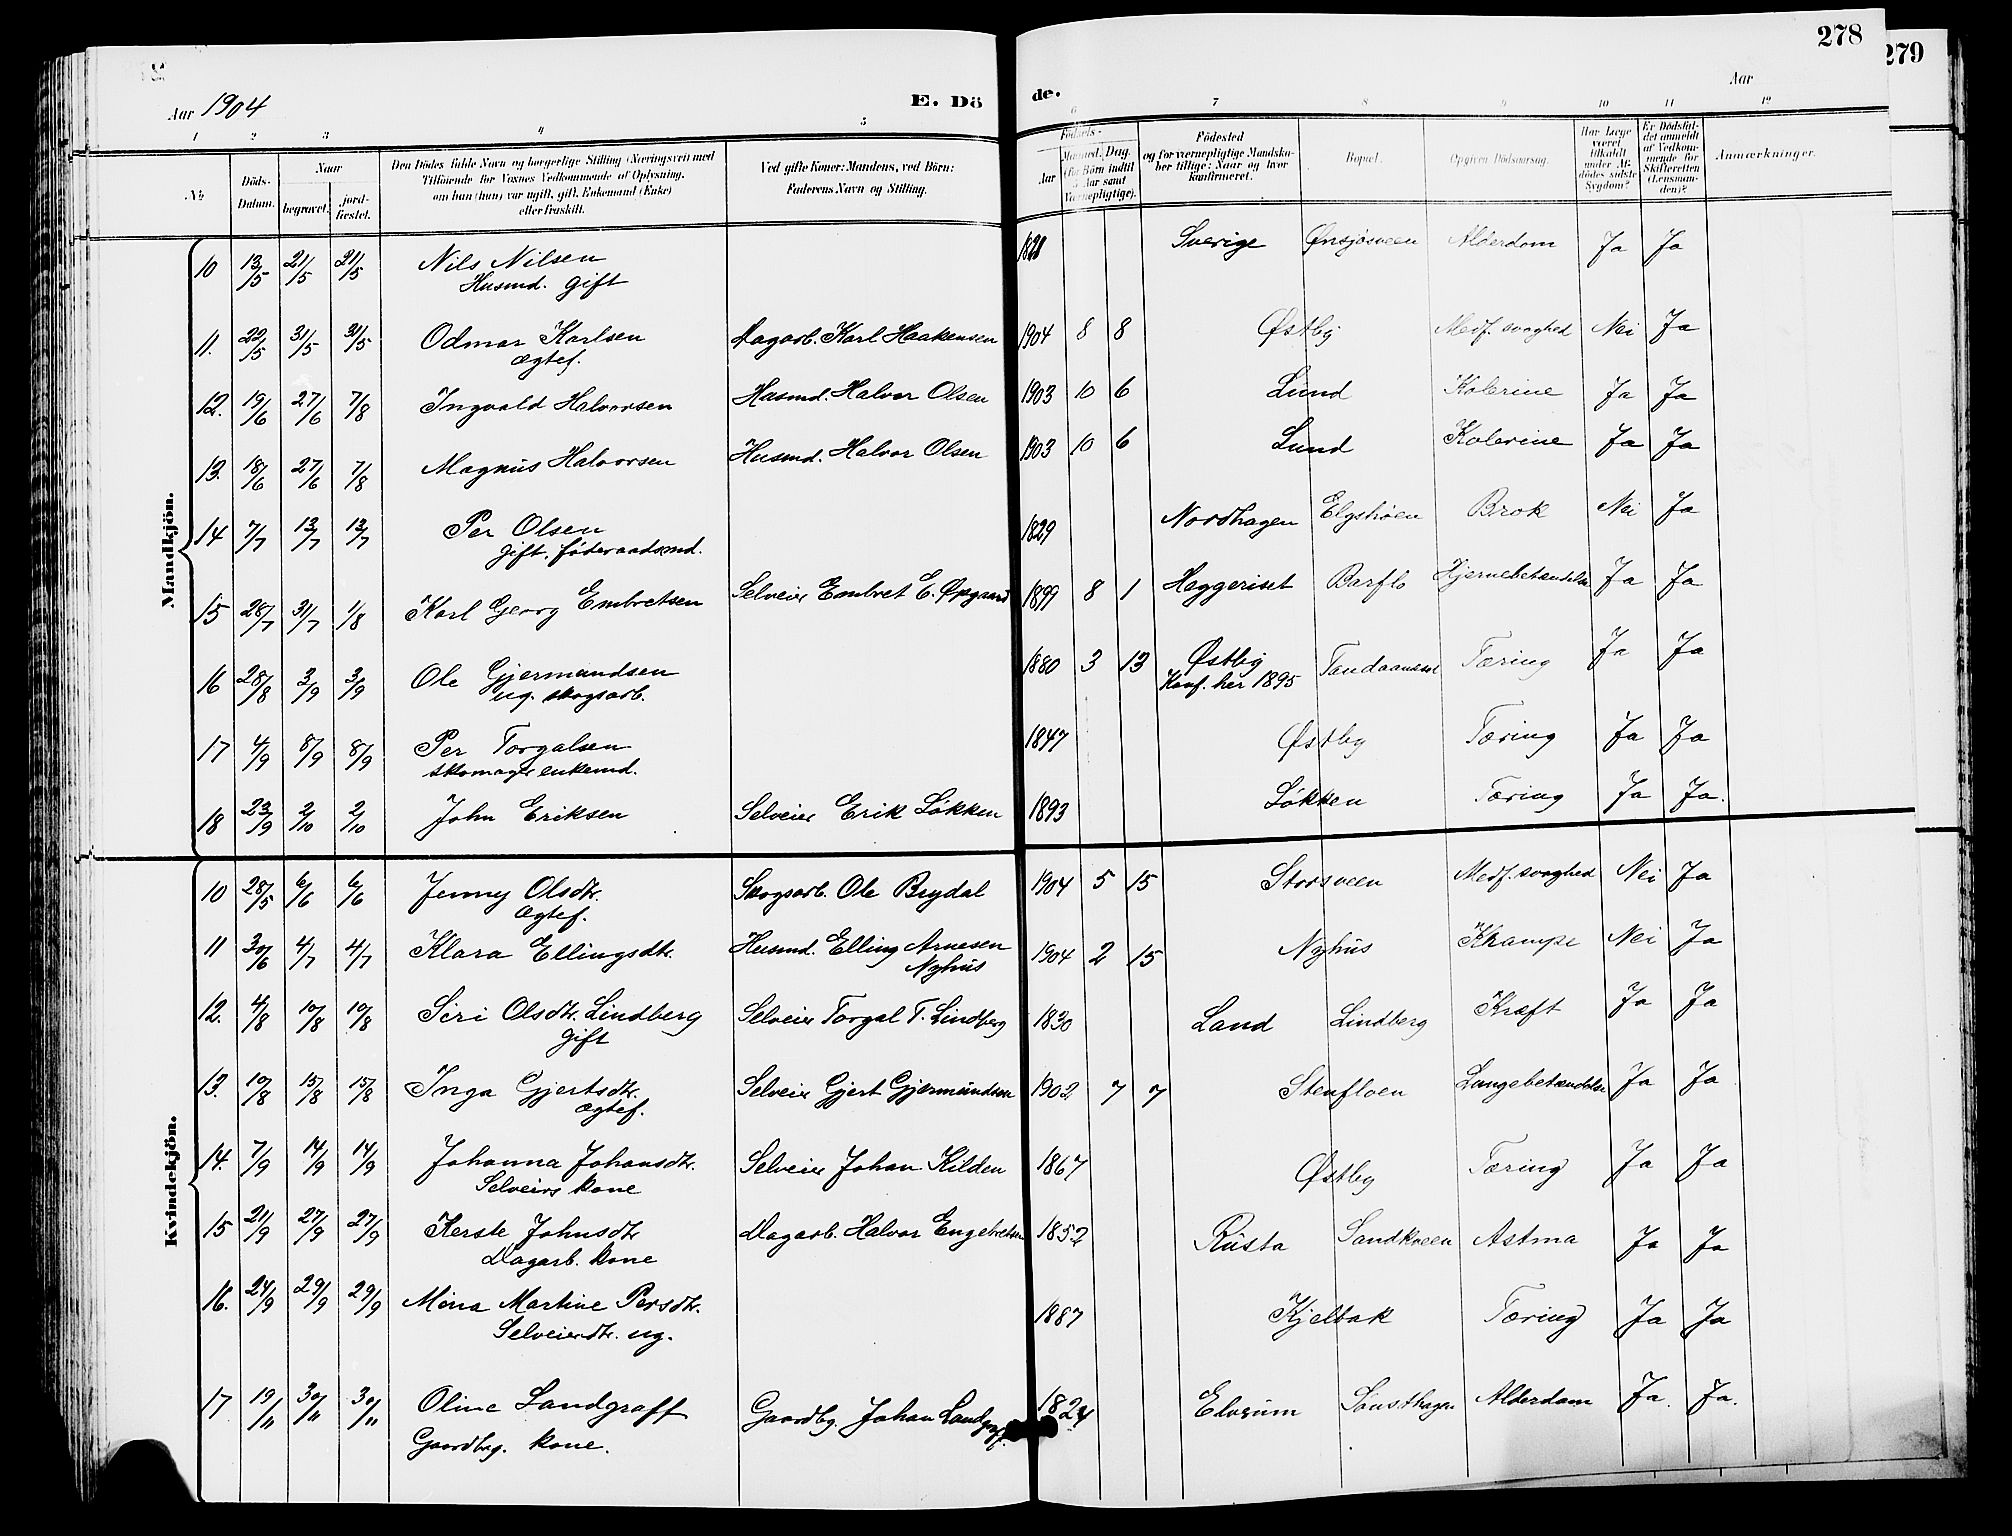 278
279
Aar 1904
E. Dö
de.
Aar
1 2 3 4 5 6 7 8 9 10 11 12
No
Döds-Datum.
Naar
begravet.
jord-fæstet.
Den Dödes fulde Navn og borgerlige Stilling (Næringsvei) med
Tilföiende for Voxnes Vedkommende af Oplysning,
om han (hun) var ugift, gift, Enkemand (Enke)
eller fraskilt.
Ved gifte Koner: Mandens, ved Börn:
Faderens Navn og Stilling.
Födsels-
Aar
Maaned. Dag.
(for Börn indtil
2 Aar samt
Værnepligtige).
Födested
og for værnepligtige Mandska-
ber tillige: Naar og hvor
konfirmeret.
Bopæl.
Opgiven Dödsaarsag.
Har Læge
været
tilkaldt
under Af-
dödes sidste
Sygdom?
Er Dödsfal-
det anmeldt
af Vedkom-
mende for
Skifteretten
(Lensman-
den)?
Anmærkninger.
Mandkjön.
10 13/5 21/5 21/5 Nils Nilsen 1828 Sverige Ønsjøsveen Alderdom Ja Ja
Husmd. gift
11. 22/5 31/5 31/5 Odmar Karlsen Dagarb. Karl Haakensen 1904 8 8 Østby Medf. svaghed Nei Ja
ægtef.
12. 19/6 27/6 7/8 Ingvald Halvorsen Husmd. Halvor Olsen 1903 10 6 Lund Kolerine Ja Ja
13. 18/6 27/6 7/8 Magnus Halvorsen Husmd. Halvor Olsen 1903 10 6 Lund Kolerine Ja Ja
14 7/7 13/7 13/7 Per Olsen 1829 Nordhagen Elgshøen Brok Nei Ja
gift, føderaadsmd.
15 28/7 31/7 1/8 Karl Georg Embretsen Selveier Embret E. Øpgaard 1899 8 1 Haggeriset Barflo Hjernebetændelse Ja Ja
16 28/8 3/9 3/9 Ole Gjermundsen 1880 3 13 Østby Tandaaneset Tæring Ja Ja
ug. skogsarb. Konf. her 1895
17 4/9 8/9 8/9 Per Torgalsen 1847 Østby Tæring Ja Ja
skomager enkemd.
18 23/9 2/10 2/10 John Eriksen Selveier Erik Løkken 1893 Løkken Tæring Ja Ja.
Kvindekjön.
10 28/5 6/6 6/6 Jenny Olsdtr. Skogsarb. Ole Brydal 1904 5 15 Storsveen Medf. svaghed Nei Ja
ægtef.
11 30/6 4/7 4/7 Klara Ellingsdtr. Husmd. Elling Arnesen 1904 2 15 Nyhus Krampe Nei Ja
Nyhus
12. 4/8 10/8 10/8 Siri Olsdtr. Lindberg Selveier Torgal T. Lindberg 1830 Land Lindberg Kræft Ja Ja
gift
13. 10/8 15/8 15/8 Inga Gjertsdtr. Selveier Gjert Gjermundsen 1902 7 7 Stenfloen Lungebetændelse Ja Ja
ægtef.
14. 7/9 14/9 14/9 Johanna Johansdtr. Selveier Johan Kilden 1867 Østby Tæring Ja Ja
Selveirs kone
15 21/9 27/9 27/9 Kerste Johnsdtr Dagarb. Halvor Engebretsen 1852 Rusta Sandkveen Astma Ja Ja
Dagarb. kone
16. 24/9 29/9 29/9 Mina Martine Persdtr. 1887 Kjelbak Tæring Ja Ja
Selveierdtr. ug.
17 19/11 30/11 30/11 Oline Landgraff Gaardbg. Johan Landgraff. 1824 Elverum Alderdom Ja. Ja.
Gaardbrg. kone.